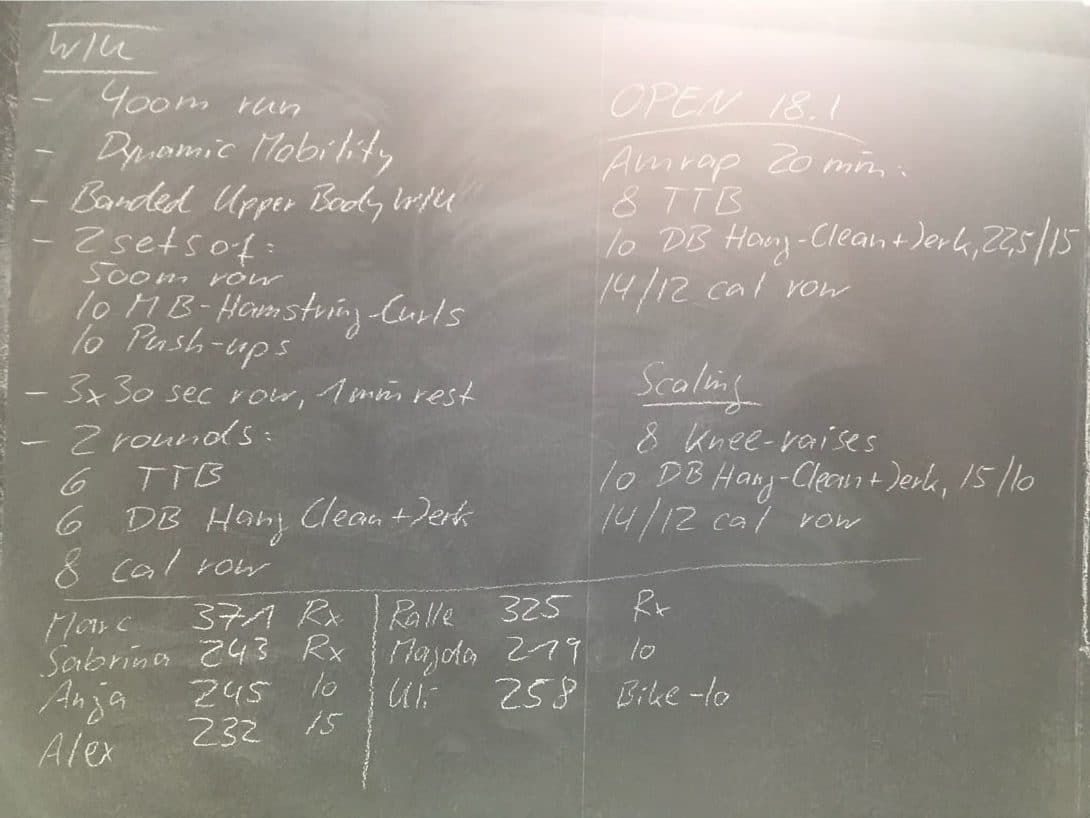 W/U
- 400m run
- Dynamic Mobility
- Banded Upper Body W/U
- 2 sets of:
500m row
10 MB-Hamstring-Curls
10 Push-ups
- 3x30 sec row, 1 min rest
- 2 rounds:
6 TTB
6 DB Hang Clean+Jerk
8 cal row
OPEN 18.1
Amrap 20 min:
8 TTB
10 DB Hang-Clean+Jerk, 22,5/15
14/12 cal row
Scaling
8 Knee-raises
10 DB Hang-Clean+Jerk, 15/10
14/12 cal row
Marc 371 Rx
Sabrina 243 Rx
Anja 245 10
Alex 232 15
Ralle 325 Rx
Majda 219 10
Uli 258 Bike-10